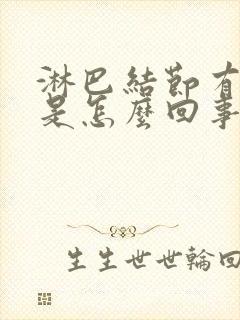 淋巴結節有
是怎麼回事
生生世世輪回